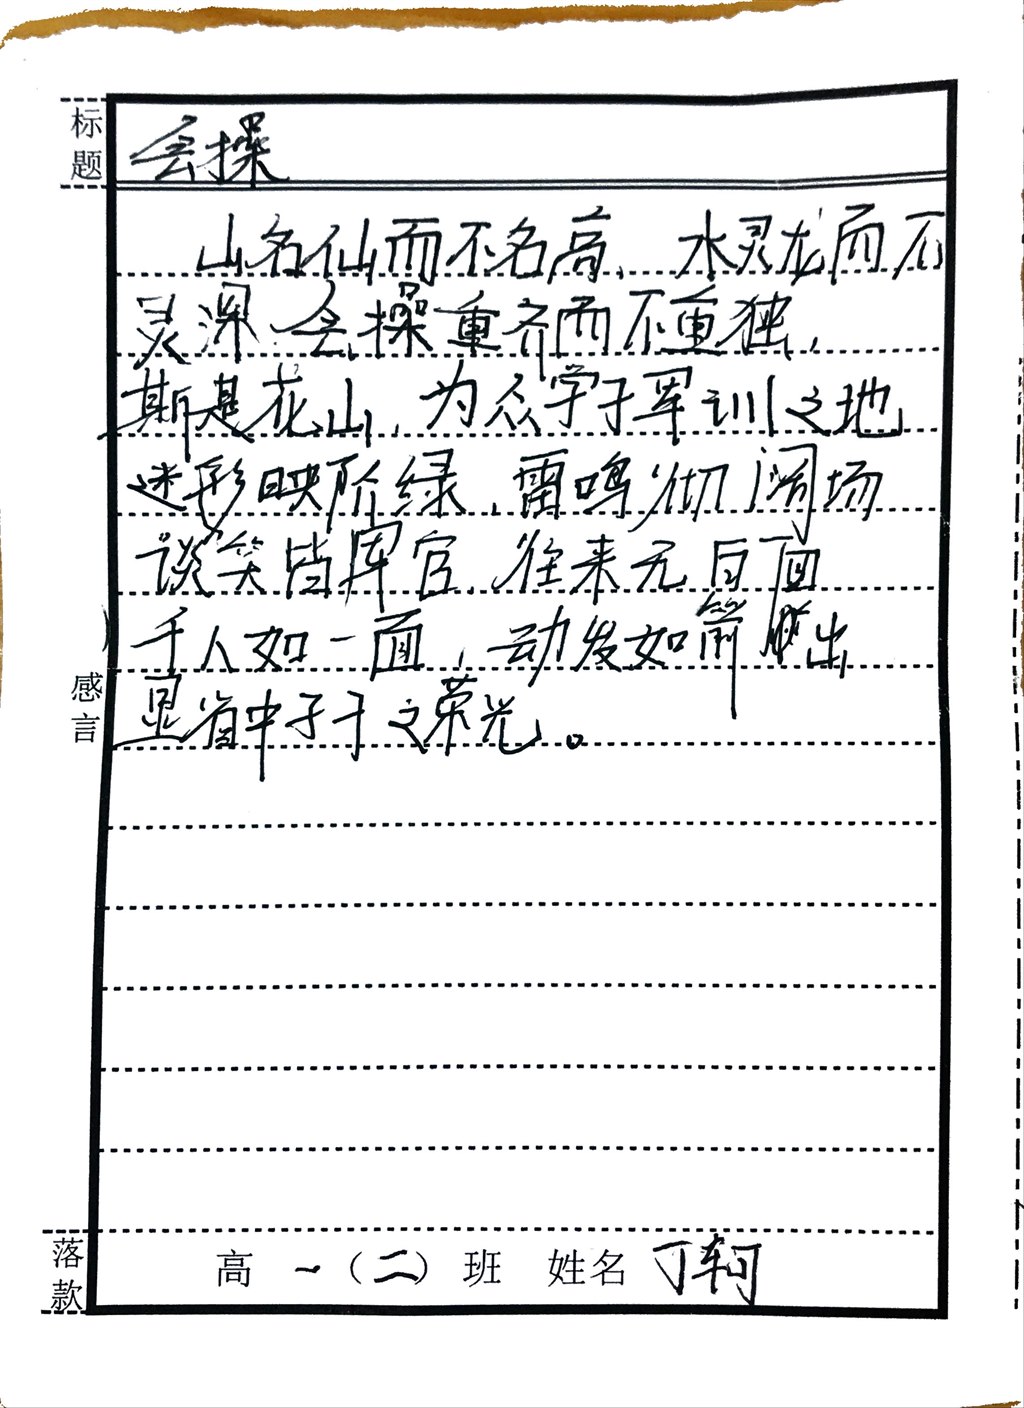 标题
会操
山名仙而不名高，水灵龙而不
灵深，会操重齐而不重独，
斯是花山，为众学子军训之地
迷彩映阶绿，雷鸣彻阔场
谈笑皆军官，往来无白面
千人如一面，动发如箭 出
显省中子于之荣光。
感言
落款
高一（二）班 姓名 丁轲